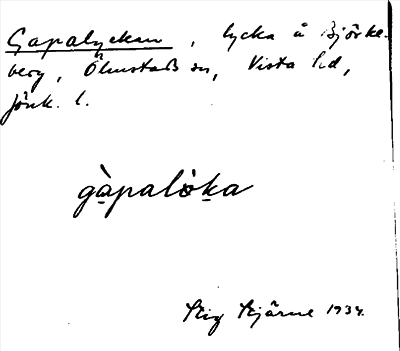 Gapalyckan, lycka å Björke-
berg, Ölmstad sn, Vista hd,
Jönk. l.
gàpalòka
Stig Bjärne 1934.